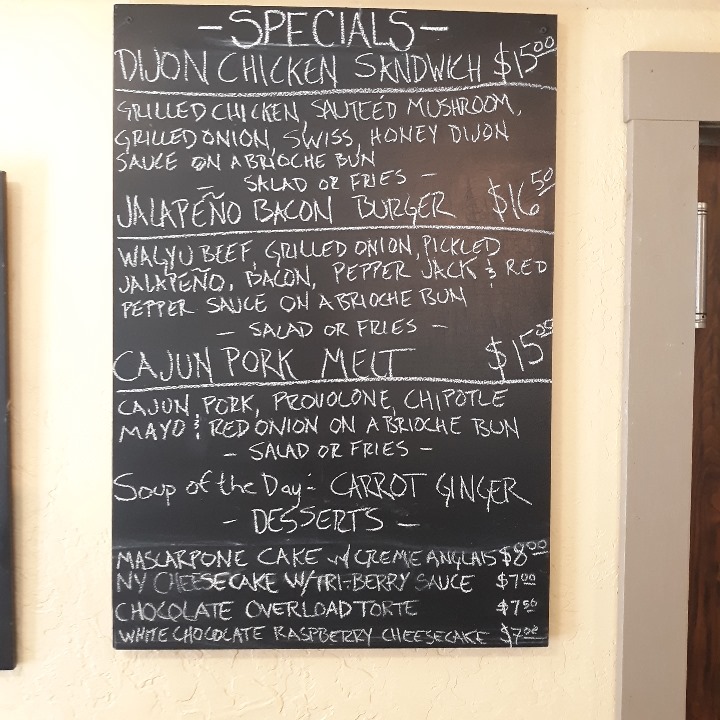 -SPECIALS-
DIJON CHICKEN SANDWICH $15⁰⁰
GRILLED CHICKEN, SAUTEÉD MUSHROOM,
GRILLED ONION, SWISS, HONEY DIJON
SAUCE ON A BRIOCHE BUN
- SALAD OR FRIES -
JALAPEÑO BACON BURGER $16⁵⁰
WAGYU BEEF, GRILLED ONION, PICKLED
JALAPEÑO, BACON, PEPPER JACK & RED
PEPPER SAUCE ON A BRIOCHE BUN
- SALAD OR FRIES -
CAJUN PORK MELT $15²⁵
CAJUN PORK, PROVOLONE, CHIPOTLE
MAYO & RED ONION ON A BRIOCHE BUN
- SALAD OR FRIES -
Soup of the Day:- CARROT GINGER
- DESSERTS -
MASCARPONE CAKE w/ CREME ANGLAIS $8⁰⁰
NY CHEESECAKE W/TRI-BERRY SAUCE $7⁰⁰
CHOCOLATE OVERLOAD TORTE $7⁵⁰
WHITE CHOCOLATE RASPBERRY CHEESECAKE $7⁰⁰